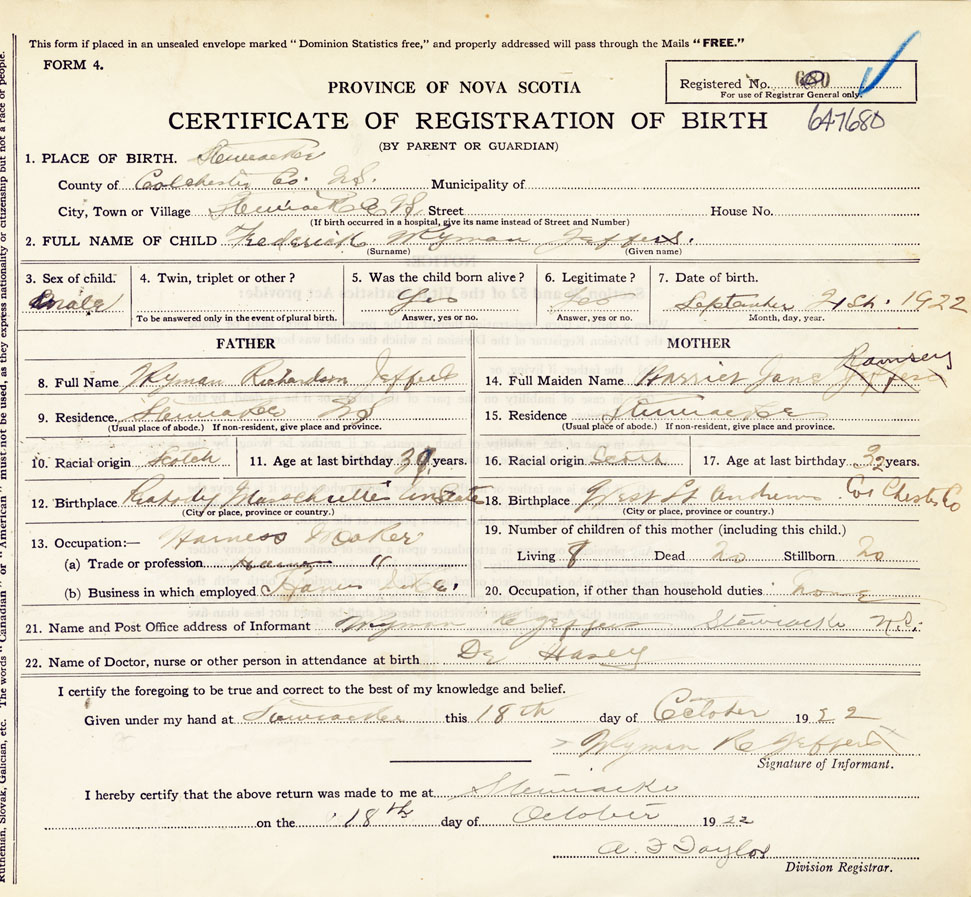 This form if placed in an unsealed envelope marked "Dominion Statistics free," and properly addressed will pass through the Mails "FREE."
FORM 4.
Registered No.
For use of Registrar General only.
647680
PROVINCE OF NOVA SCOTIA
CERTIFICATE OF REGISTRATION OF BIRTH
(BY PARENT OR GUARDIAN)
1. PLACE OF BIRTH. Stewiacke
County of Colchester Co. N.S. Municipality of
City, Town or Village Stewiacke N S Street House No.
(If birth occurred in a hospital, give its name instead of Street and Number)
2. FULL NAME OF CHILD Frederick Wyman Jeffers.
(Surname) (Given name)
3. Sex of child. 4. Twin, triplet or other? 5. Was the child born alive? 6. Legitimate? 7. Date of birth.
Male Yes Yes September 21st. 1922
To be answered only in the event of plural birth. Answer, yes or no. Answer, yes or no. Month, day, year.
FATHER MOTHER
Ramsey
8. Full Name Wyman Richardson Jeffers 14. Full Maiden Name Harriet Jane Jeffers
9. Residence. Stewiacke NS 15. Residence Stewiacke
(Usual place of abode.) If non-resident, give place and province. (Usual place of abode.) If non-resident, give place and province.
10. Racial origin Scotch 11. Age at last birthday 39 years. 16. Racial origin Scotch 17. Age at last birthday 32 years.
12. Birthplace Peabody 18. Birthplace West St Andrews Colchester Co
(City or place, province or country.) (City or place, province or country.)
19. Number of children of this mother (including this child.)
13. Occupation:— Harness Maker
Living 8 Dead No Stillborn No
(a) Trade or profession. "
(b) Business in which employed 20. Occupation, if other than household duties None
21. Name and Post Office address of Informant Wyman R Jeffers Stewiacke N.S.
22. Name of Doctor, nurse or other person in attendance at birth Dr
I certify the foregoing to be true and correct to the best of my knowledge and belief.
Given under my hand at Stewiacke this 18th day of October 1922
Wyman R Jeffers
Signature of Informant.
I hereby certify that the above return was made to me at Stewiacke
on the 18th day of October 1922
A. F Taylor
Division Registrar.
Ruthenian, Slovak, Galician, etc. The words "Canadian" or "American" must not be used, as they express nationality or citizenship but not a race or people.